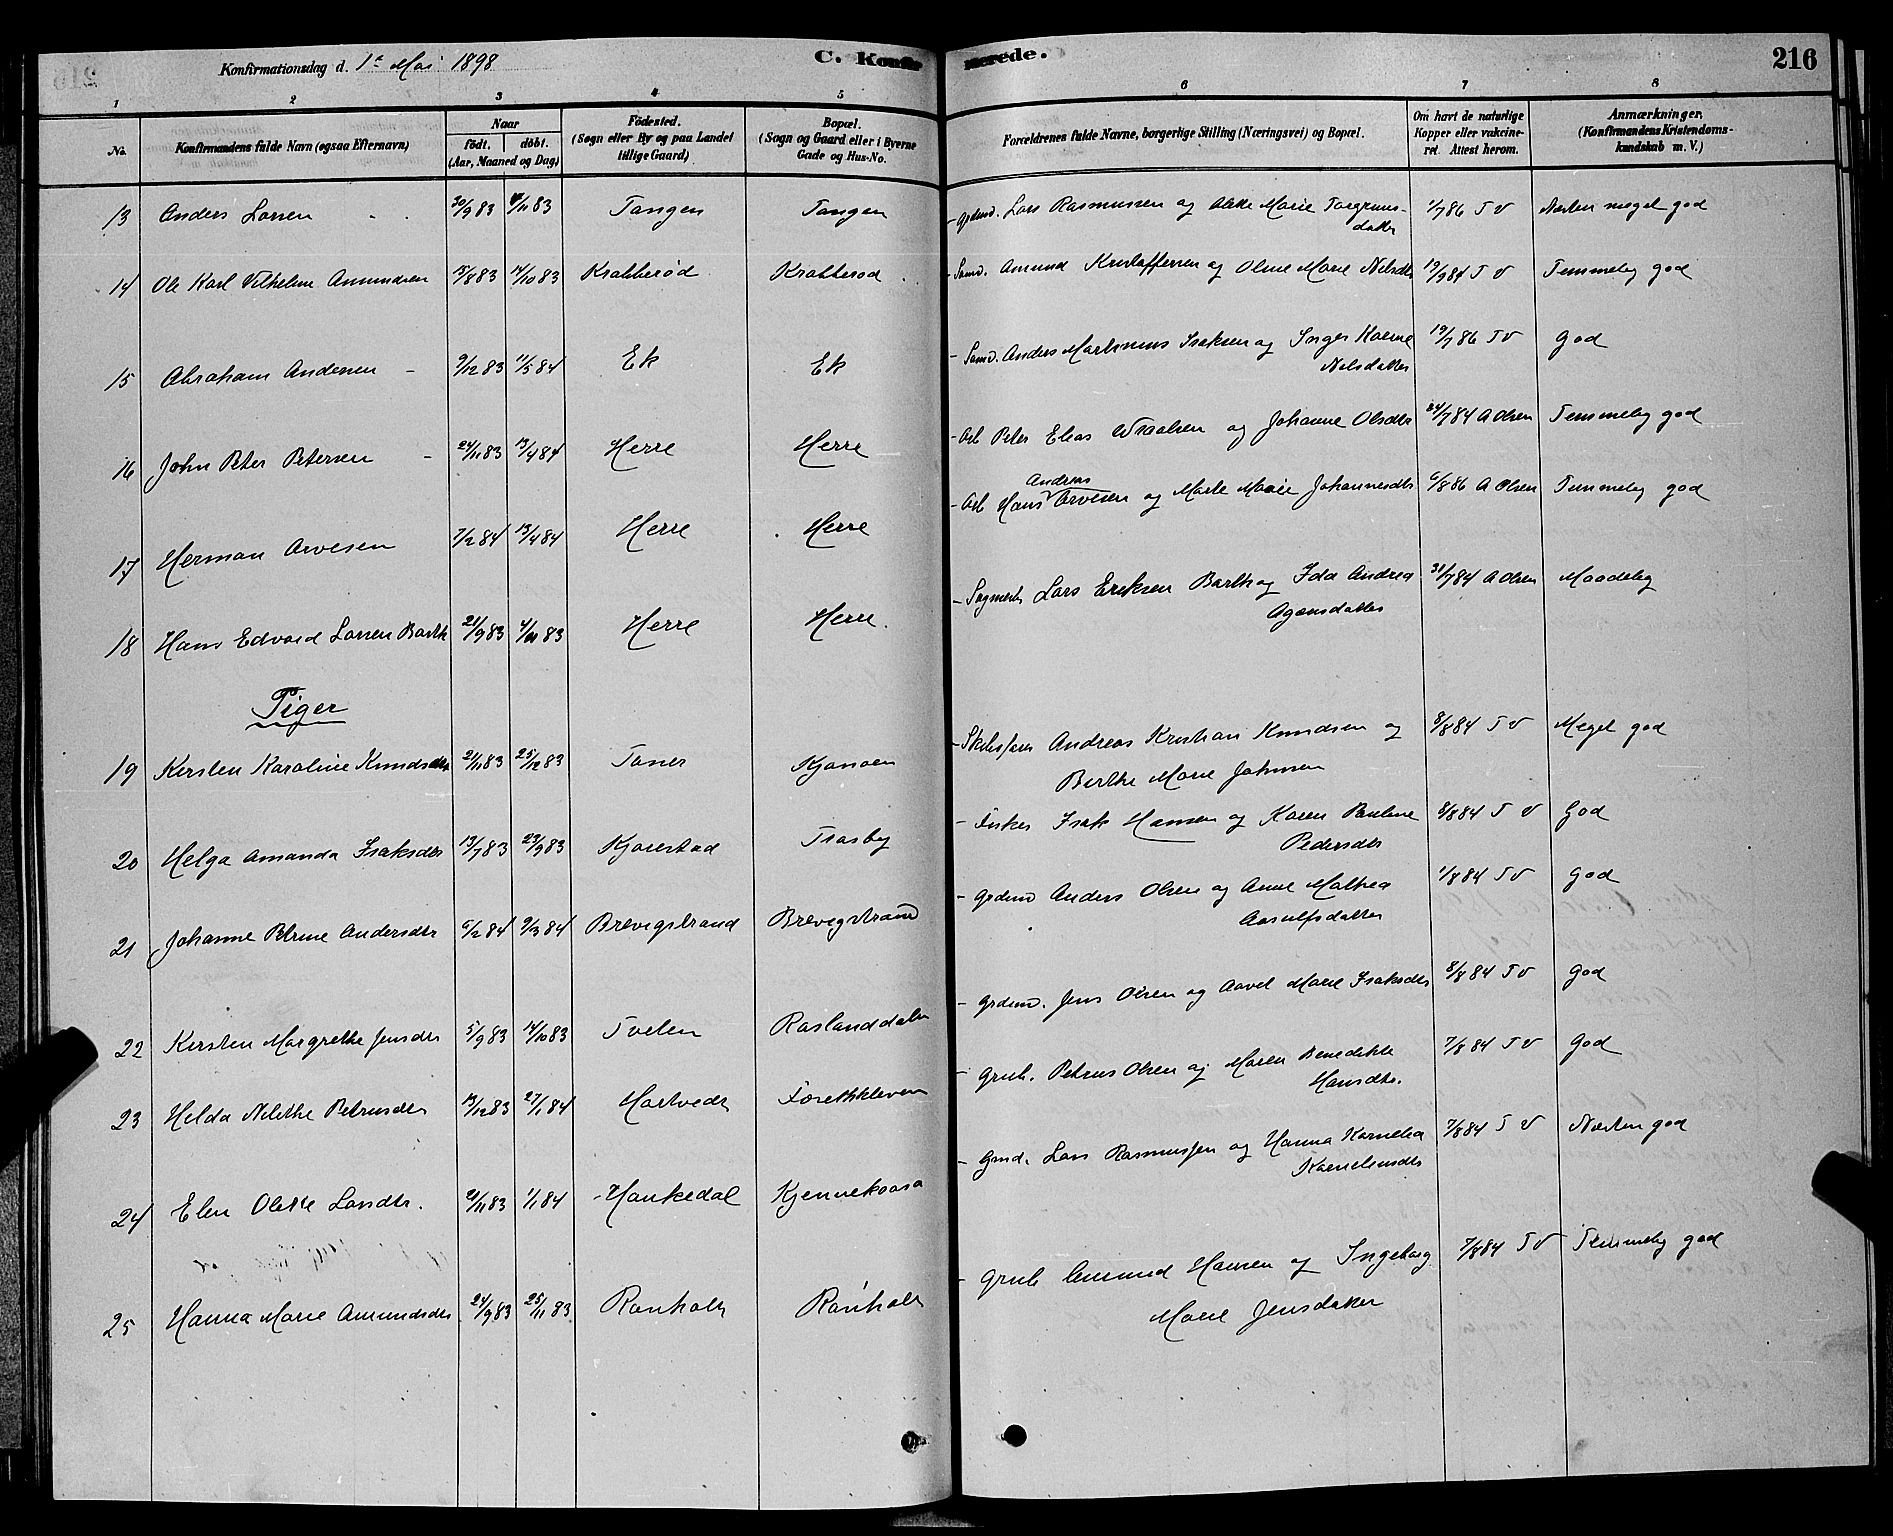 Konfirmationsdag d. 1ᵉ Mai 1898
C. Konfirmerede.
216
1 2 3 4 5 6 7 8
No.
Konfirmandens fulde Navn (ogsaa Efternavn)
Naar
födt. döbt.
(Aar, Maaned og Dag)
Födested.
(Sogn eller By og paa Landet
tillige Gaard)
Bopæl.
(Sogn og Gaard eller i Byerne
Gade og Hus-No.
Forældrenes fulde Navne, borgerlige Stilling (Næringsvei) og Bopæl.
Om havt de naturlige
Kopper eller vakcine-
ret. Attest herom.
Anmærkninger.
(Konfirmandens Kristendoms-
kundskab m. V.)
13 Anders Larsen 30/9 83 /11 83 Tangen Tangen Lars Rasmussen og Marie Torgrims- 1/7 86 T V Næsten meget god
datter
14 Ole Karl Vilhelm Amundsen 15/8 83 14/10 83 Krabberød Krabberød Amund Kristoffersen og Oline Marie Nilsdtr 19/9 84 T V Temmelig god
15 Abraham Andersen 9/12 83 11/5 84 Ek Ek Anders Martinius Isaksen og Inger Karine 19/7 86 T V God
Nilsdatter
16 John Peter Petersen 24/11 83 13/4 84 Herre Herre Arb Peter Elias og Johanne Olsdtr 24/7 84 A Olsen Temmelig god
17 Herman Arvesen 7/2 84 13/4 84 Herre Herre Arb Hans Andreas Arvesen og Marte Marie Johannesdtr 6/8 86 A Olsen Temmelig god
18 Hans Edvard Larsen Barth 21/9 83 4/11 83 Herre Herre. Sagmester Lars Eriksen Barth og Ida Andrea 31/7 84 A Olsen Maadelig
Piger
19 Kirsten Karoline Knudsdtr 21/11 83 25/12 83 Kjønøen Andreas Kristian Knudsen og 8/8 84 T V Meget god
Berthe Marie Johnsen
20 Helga Amanda Isaksdtr 13/7 83 23/9 83 Kjørestad Traaby Fisker Isak Hansen og Karen Pauline 8/8 84 T V God
Pedersdtr
21 Johanne Petrine Andersdtr 6/2 84 9/3 84 Brevigstrand Brevigstrand Grdmd Anders Olsen og Anne Mathea 1/8 84 T V God
Aasulfsdatter
22 Kirsten Margrethe Jensdtr 5/9 83 14/10 83 Tveten Røslanddalen Grdmd. Jens Olsen og Aavel Marie Isaksdtr 8/8 84 T V God
23 Helda Nilthe Petrusdtr 13/12 83 27/1 84 Hartvedt Grub. Petrus Olsen og Maren Benedikte 7/8 84 T V God
Hansdtr.
24 Elen Olette Larsdtr. 21/11 83 1/1 84 Haukedal Kjennekaasa Grmd. Lars Rasmussen og Hanna Kornelia 7/8 84 T V Næsten god
Korneliusdtr
25 Hanna Marie Amundsdtr 24/9 83 25/11 83 Rønholt Rønholt Grub Amund Hansen og Ingeborg 7/8 84 T V Temmelig god
Marie Jensdatter